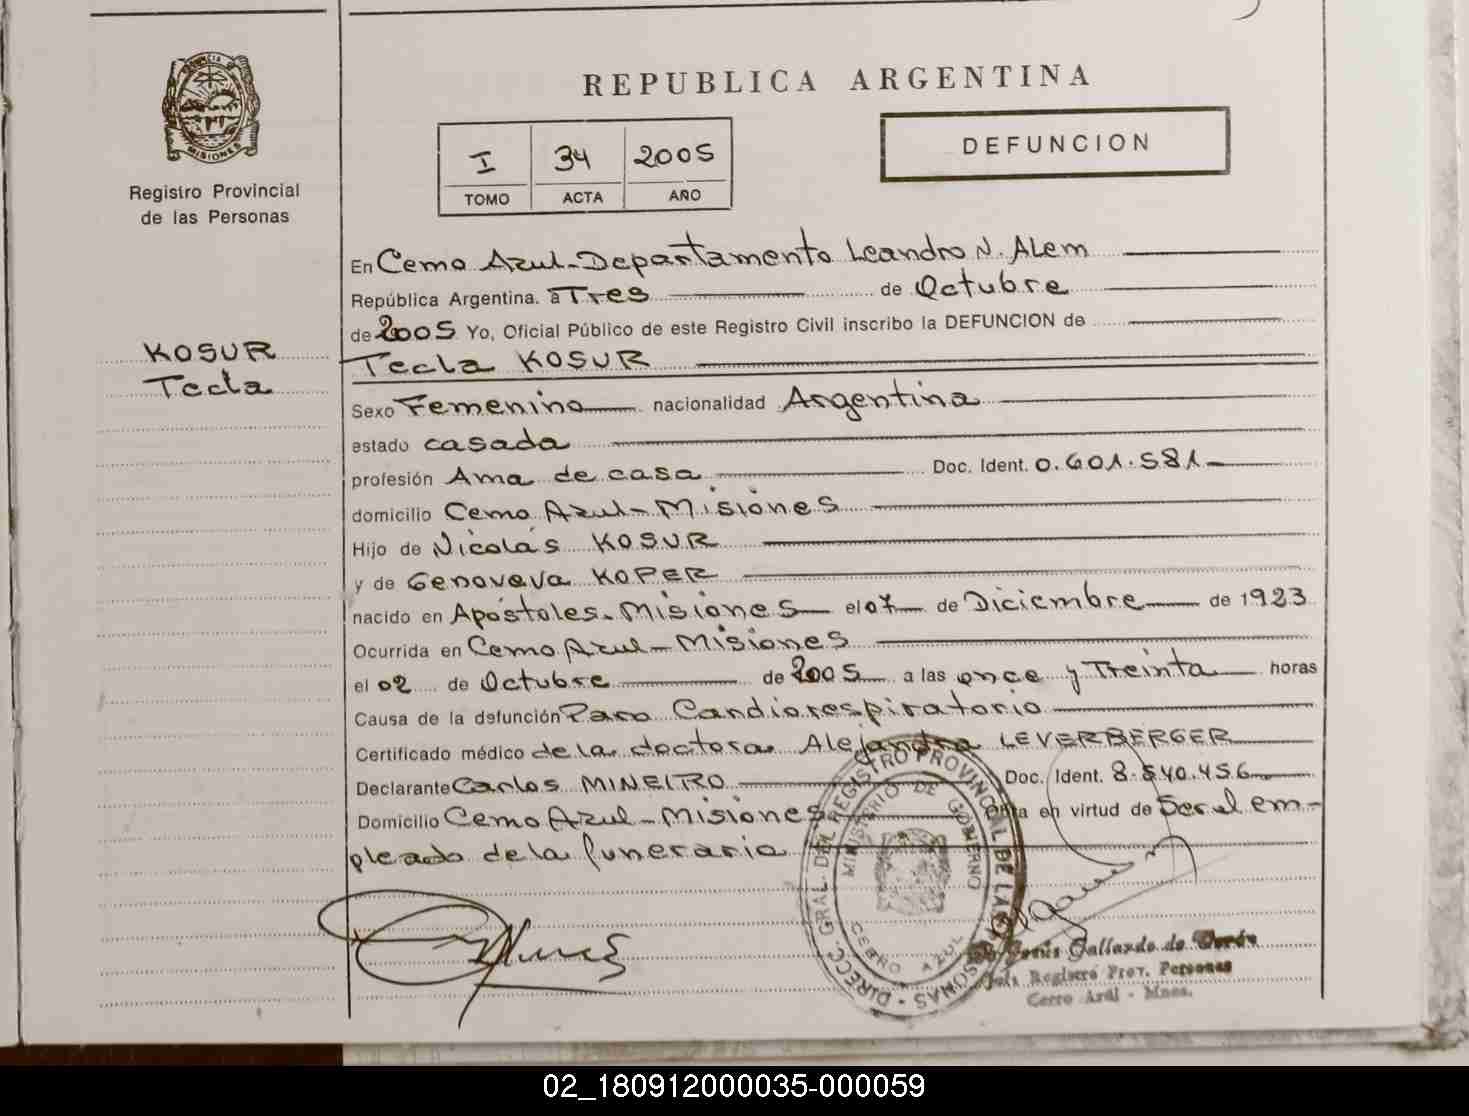 REPUBLICA ARGENTINA
PROVINCIA DE
MISIONES
Registro Provincial
de las Personas
I 34 2005
TOMO ACTA AÑO
DEFUNCION
KOSUR
Tecla
En Cerro Azul-Departamento Leandro N. Alem
República Argentina. a Tres de Octubre
de 2005 Yo, Oficial Público de este Registro Civil inscribo la DEFUNCION de
Tecla KOSUR
Sexo Femenino nacionalidad Argentina
estado casada
profesión Ama de casa Doc. Ident. 0.601.581
domicilio Cerro Azul-Misiones
Hijo de Nicolás KOSUR
y de Genoveva KOPER
nacido en Apóstoles-Misiones el 07 de Diciembre de 1923
Ocurrida en Cerro Azul-Misiones
el 02 de Octubre de 2005 a las once y Treinta horas
Causa de la defunción Paro Cardiorespiratorio
Certificado médico de la doctora Alejandra LEVERBERGER
Declarante Carlos MINEIRO Doc. Ident. 8.540.456
Domicilio Cerro Azul-Misiones Obra en virtud de Ser el em-
pleado de la funeraria
DIRECC. GRAL. DEL REGISTRO PROVINCIAL DE LAS PERSONAS
MINISTERIO DE GOBIERNO
CERRO AZUL
Jesús Gallardo de
Registro Prov. Personas
Cerro Azul - Mnes.
02_180912000035-000059